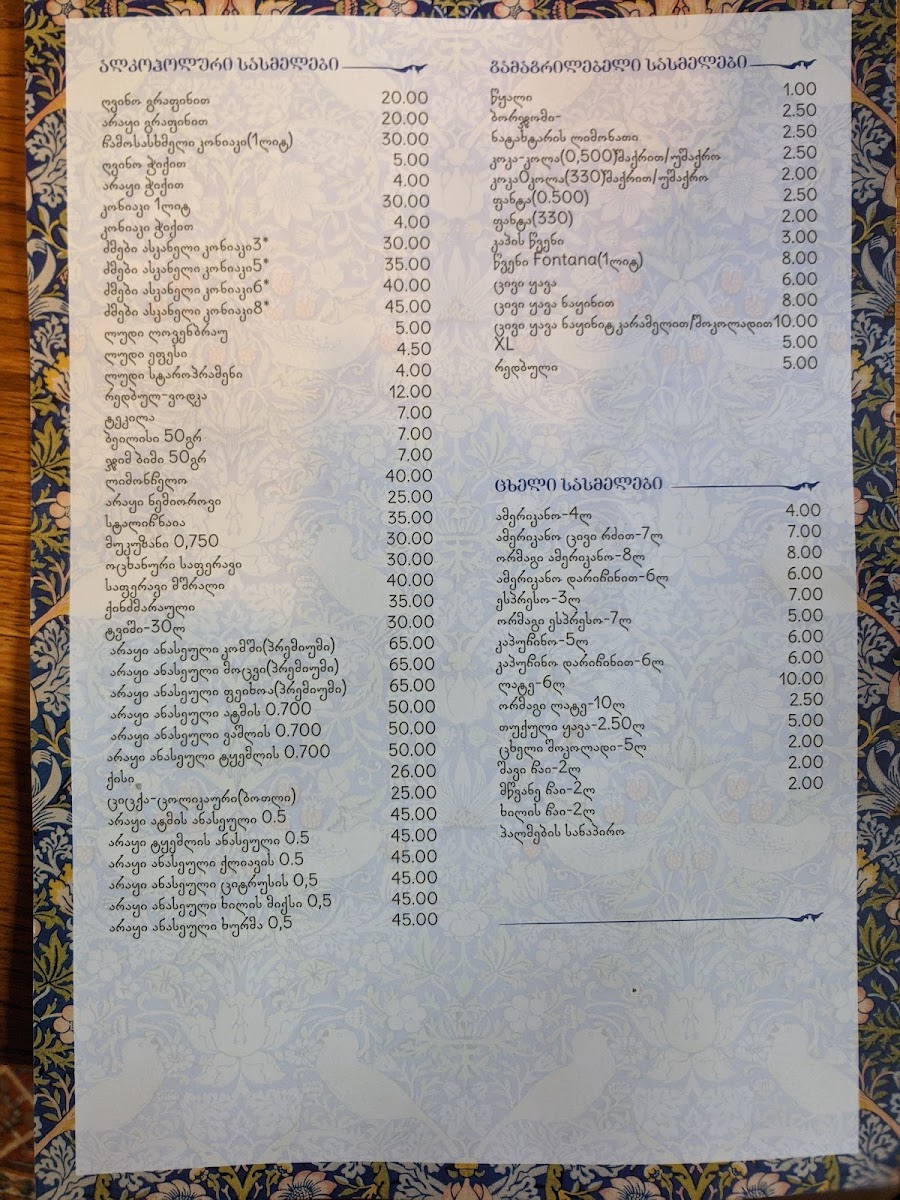 ალკოჰოლური სასმელები
ღვინო გრაფინით 20.00
არაყი გრაფინით 20.00
ჩამოსასხმელი კონიაკი(1ლიტ) 30.00
ღვინო ჭიქით 5.00
არაყი ჭიქით 4.00
კონიაკი 1ლიტ 30.00
კონიაკი ჭიქით 4.00
ძმები ასკანელი კონიაკი3* 30.00
ძმები ასკანელი კონიაკი5* 35.00
ძმები ასკანელი კონიაკი6* 40.00
ძმები ასკანელი კონიაკი8* 45.00
ლუდი ლოვენბრაუ 5.00
ლუდი ეფესი 4.50
ლუდი სტაროპრამენი 4.00
რედბულ-ვოდკა 12.00
ტეკილა 7.00
ბეილისი 50გრ 7.00
ჯიმ ბიმი 50გრ 7.00
ლიმონჩელო 40.00
არაყი ნემიროროვი 25.00
სტალიჩნაია 35.00
მუკუზანი 0,750 30.00
ოცხანური საფერავი 30.00
საფერავი მშრალი 40.00
ქინძმარაული 35.00
ტვიში-30ლ 30.00
არაყი ანასეული კომში(პრემიუმი) 65.00
არაყი ანასეული მოცვი(პრემიუმი) 65.00
არაყი ანასეული ფეიხოა(პრემიუმი) 65.00
არაყი ანასეული ატმის 0.700 50.00
არაყი ანასეული ვაშლის 0.700 50.00
არაყი ანასეული ტყემლის 0.700 50.00
ქისი 26.00
ციცქა-ცოლიკაური(ბოთლი) 25.00
არაყი ატმის ანასეული 0.5 45.00
არაყი ტყემლის ანასეული 0.5 45.00
არაყი ანასეული ქლიავის 0.5 45.00
არაყი ანასეული ციტრუსის 0,5 45.00
არაყი ანასეული ხილის მიქსი 0,5 45.00
არაყი ანასეული ხურმა 0,5 45.00
გამაგრილებელი სასმელები
წყალი 1.00
ბორჯომი- 2.50
ნატახტარის ლიმონათი 2.50
კოკა-კოლა(0,500)შაქრით/უშაქრო 2.50
კოკა0კოლა(330)შაქრით/უშაქრო 2.00
ფანტა(0.500) 2.50
ფანტა(330) 2.00
კაპის წვენი 3.00
წვენი Fontana(1ლიტ) 8.00
ცივი ყავა 6.00
ცივი ყავა ნაყინით 8.00
ცივი ყავა ნაყინიტკარამელით/შოკოლადით 10.00
XL 5.00
რედბული 5.00
ცხელი სასმელები
ამერიკანო-4ლ 4.00
ამერიკანო ცივი რძით-7ლ 7.00
ორმაგი ამერიკანო-8ლ 8.00
ამერიკანო დარიჩინით-6ლ 6.00
ესპრესო-3ლ 7.00
ორმაგი ესპრესო-7ლ 5.00
კაპუჩინო-5ლ 6.00
კაპუჩინო დარიჩინით-6ლ 6.00
ლატე-6ლ 10.00
ორმაგი ლატე-10ლ 2.50
თუქული ყავა-2.50ლ 5.00
ცხელი შოკოლადი-5ლ 2.00
შავი ჩაი-2ლ 2.00
მწვანე ჩაი-2ლ 2.00
ხილის ჩაი-2ლ
პალმების სანაპირო